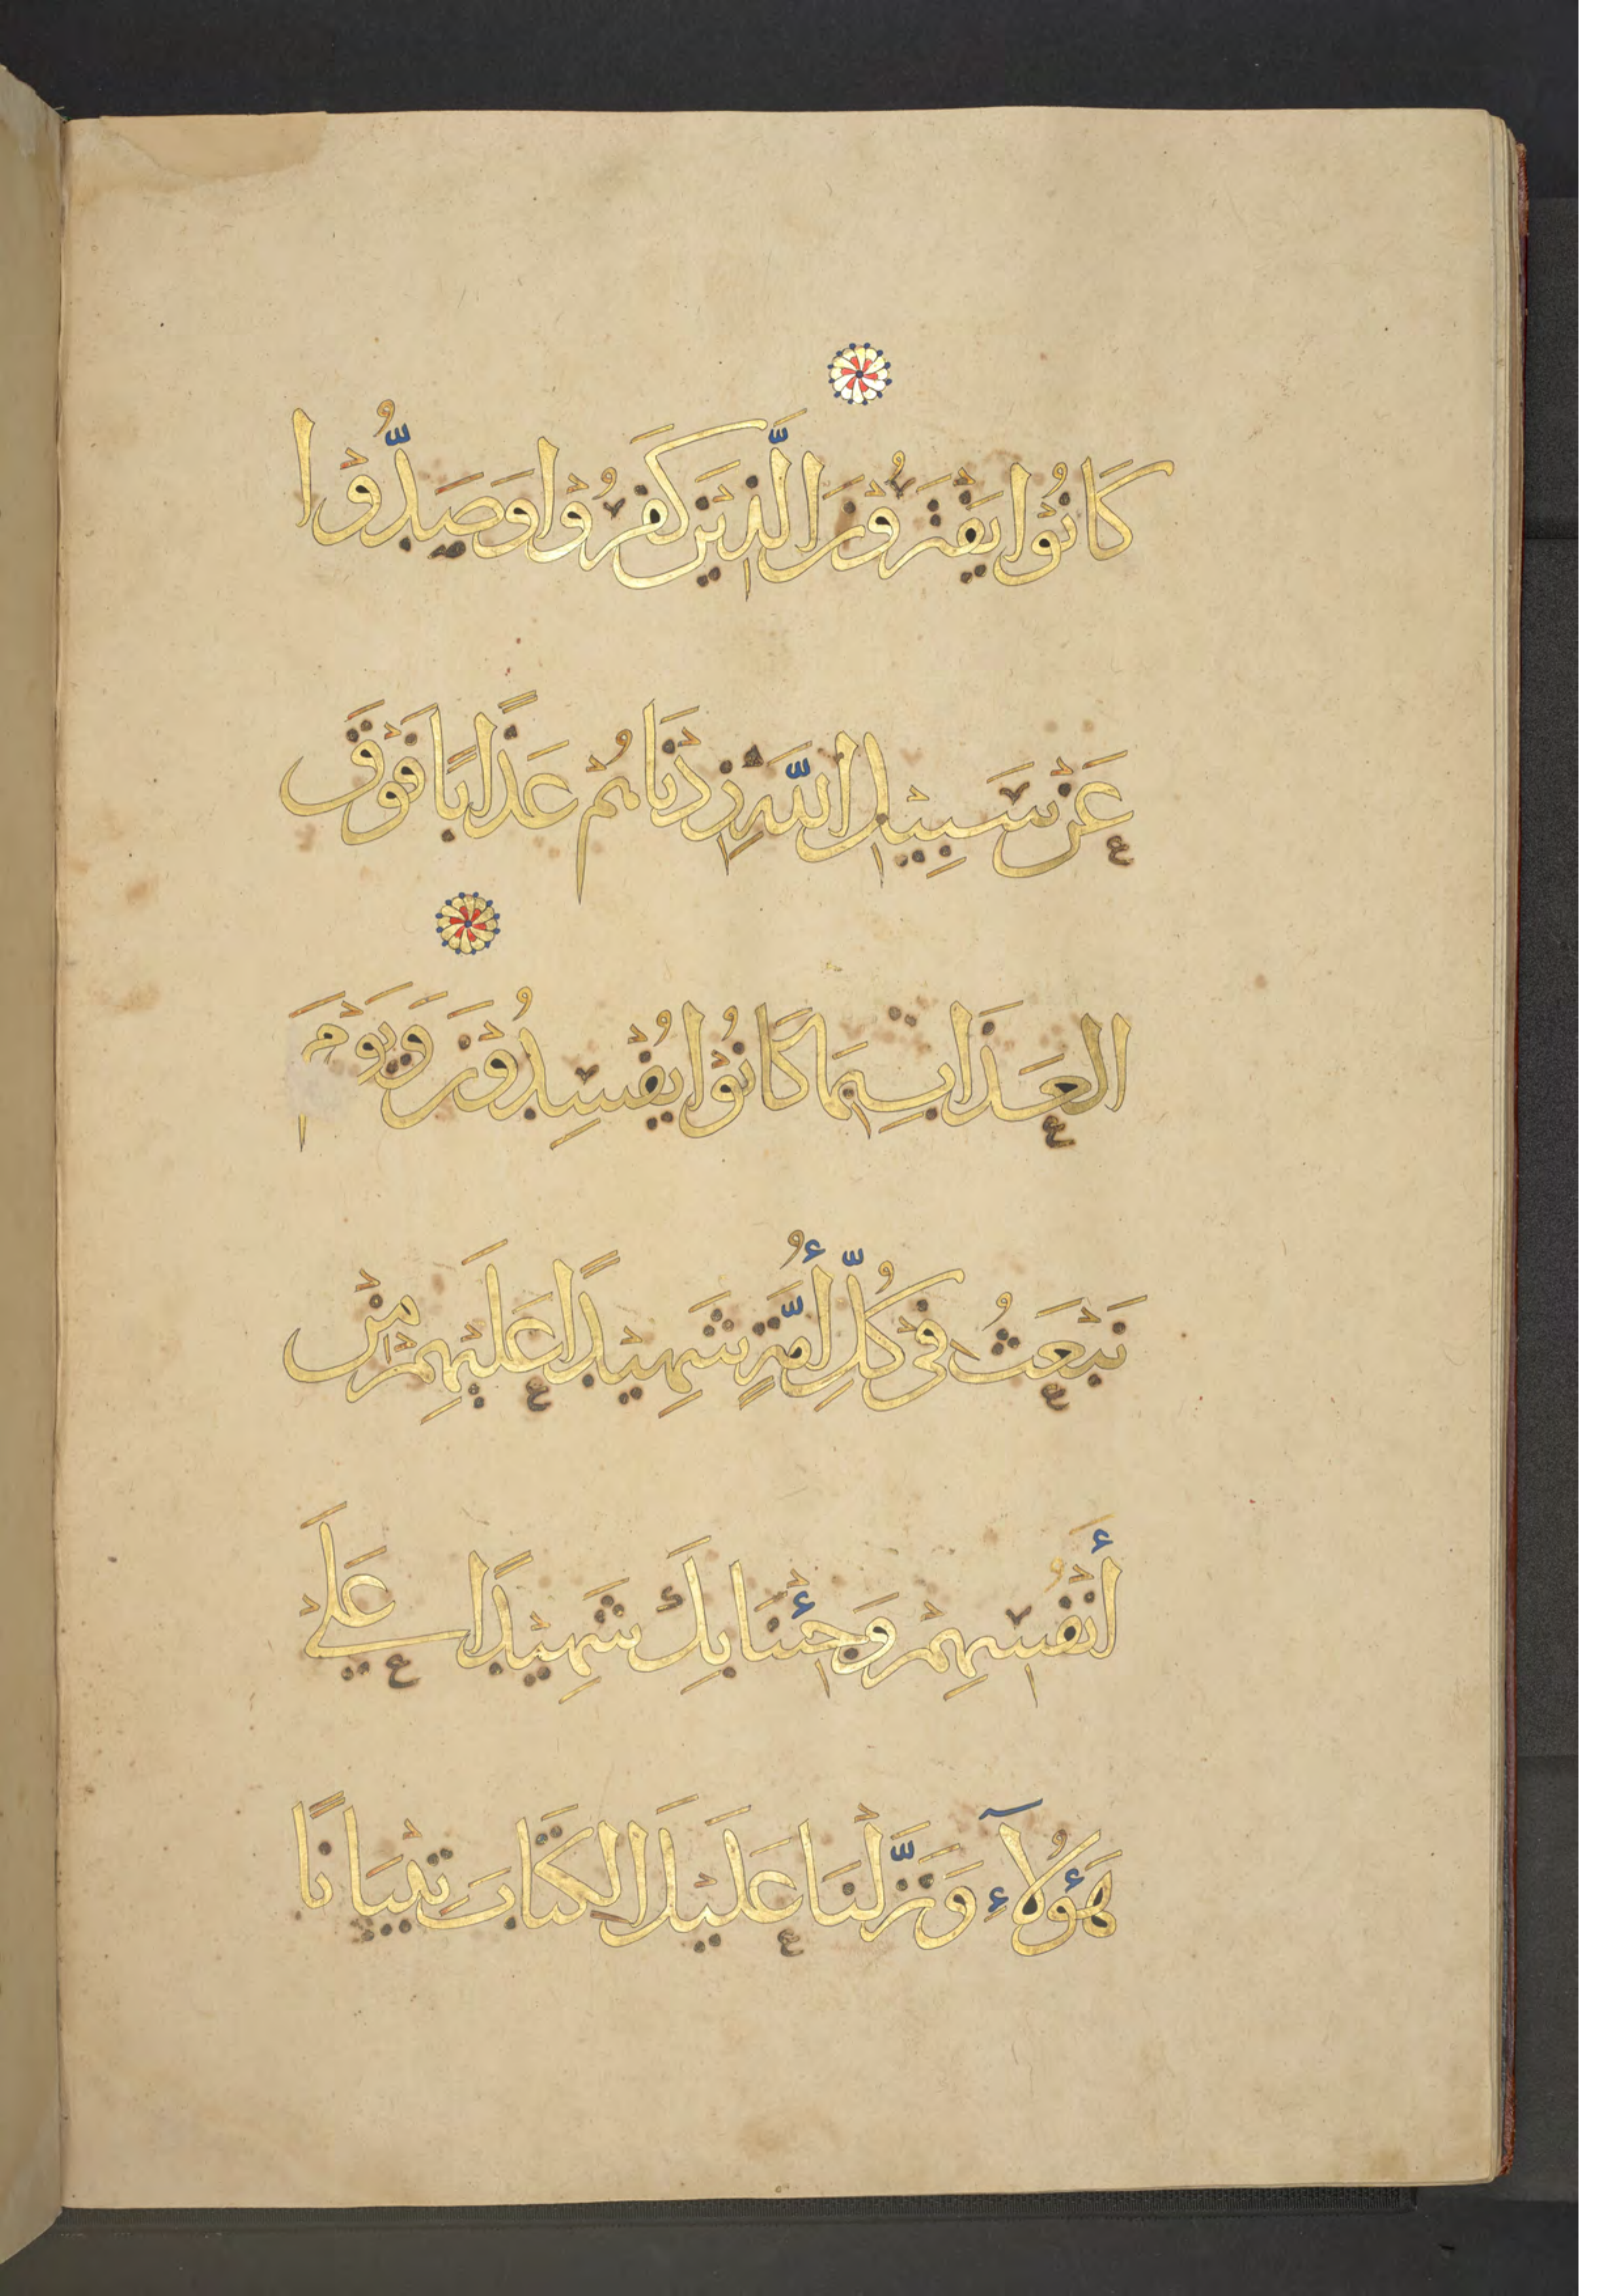 كَانُوْا يَفْتَرُوْنَ الَّذِيْنَ كَفَرُوْا وَصَدُّوْا
عَنْ سَبِيْلِ اللَّهِ زِدْنَاهُمْ عَذَابًا فَوْقَ
الْعَذَابِ بِمَا كَانُوْا يُفْسِدُوْنَ وَيَوْمَ
نَبْعَثُ فِيْ كُلِّ أُمَّةٍ شَهِيْدًا عَلَيْهِمْ مِنْ
أَنْفُسِهِمْ وَجِئْنَا بِكَ شَهِيْدًا عَلَىْ
هَؤُلَآءِ وَنَزَّلْنَا عَلَيْكَ الْكِتَابَ تِبْيَانًا